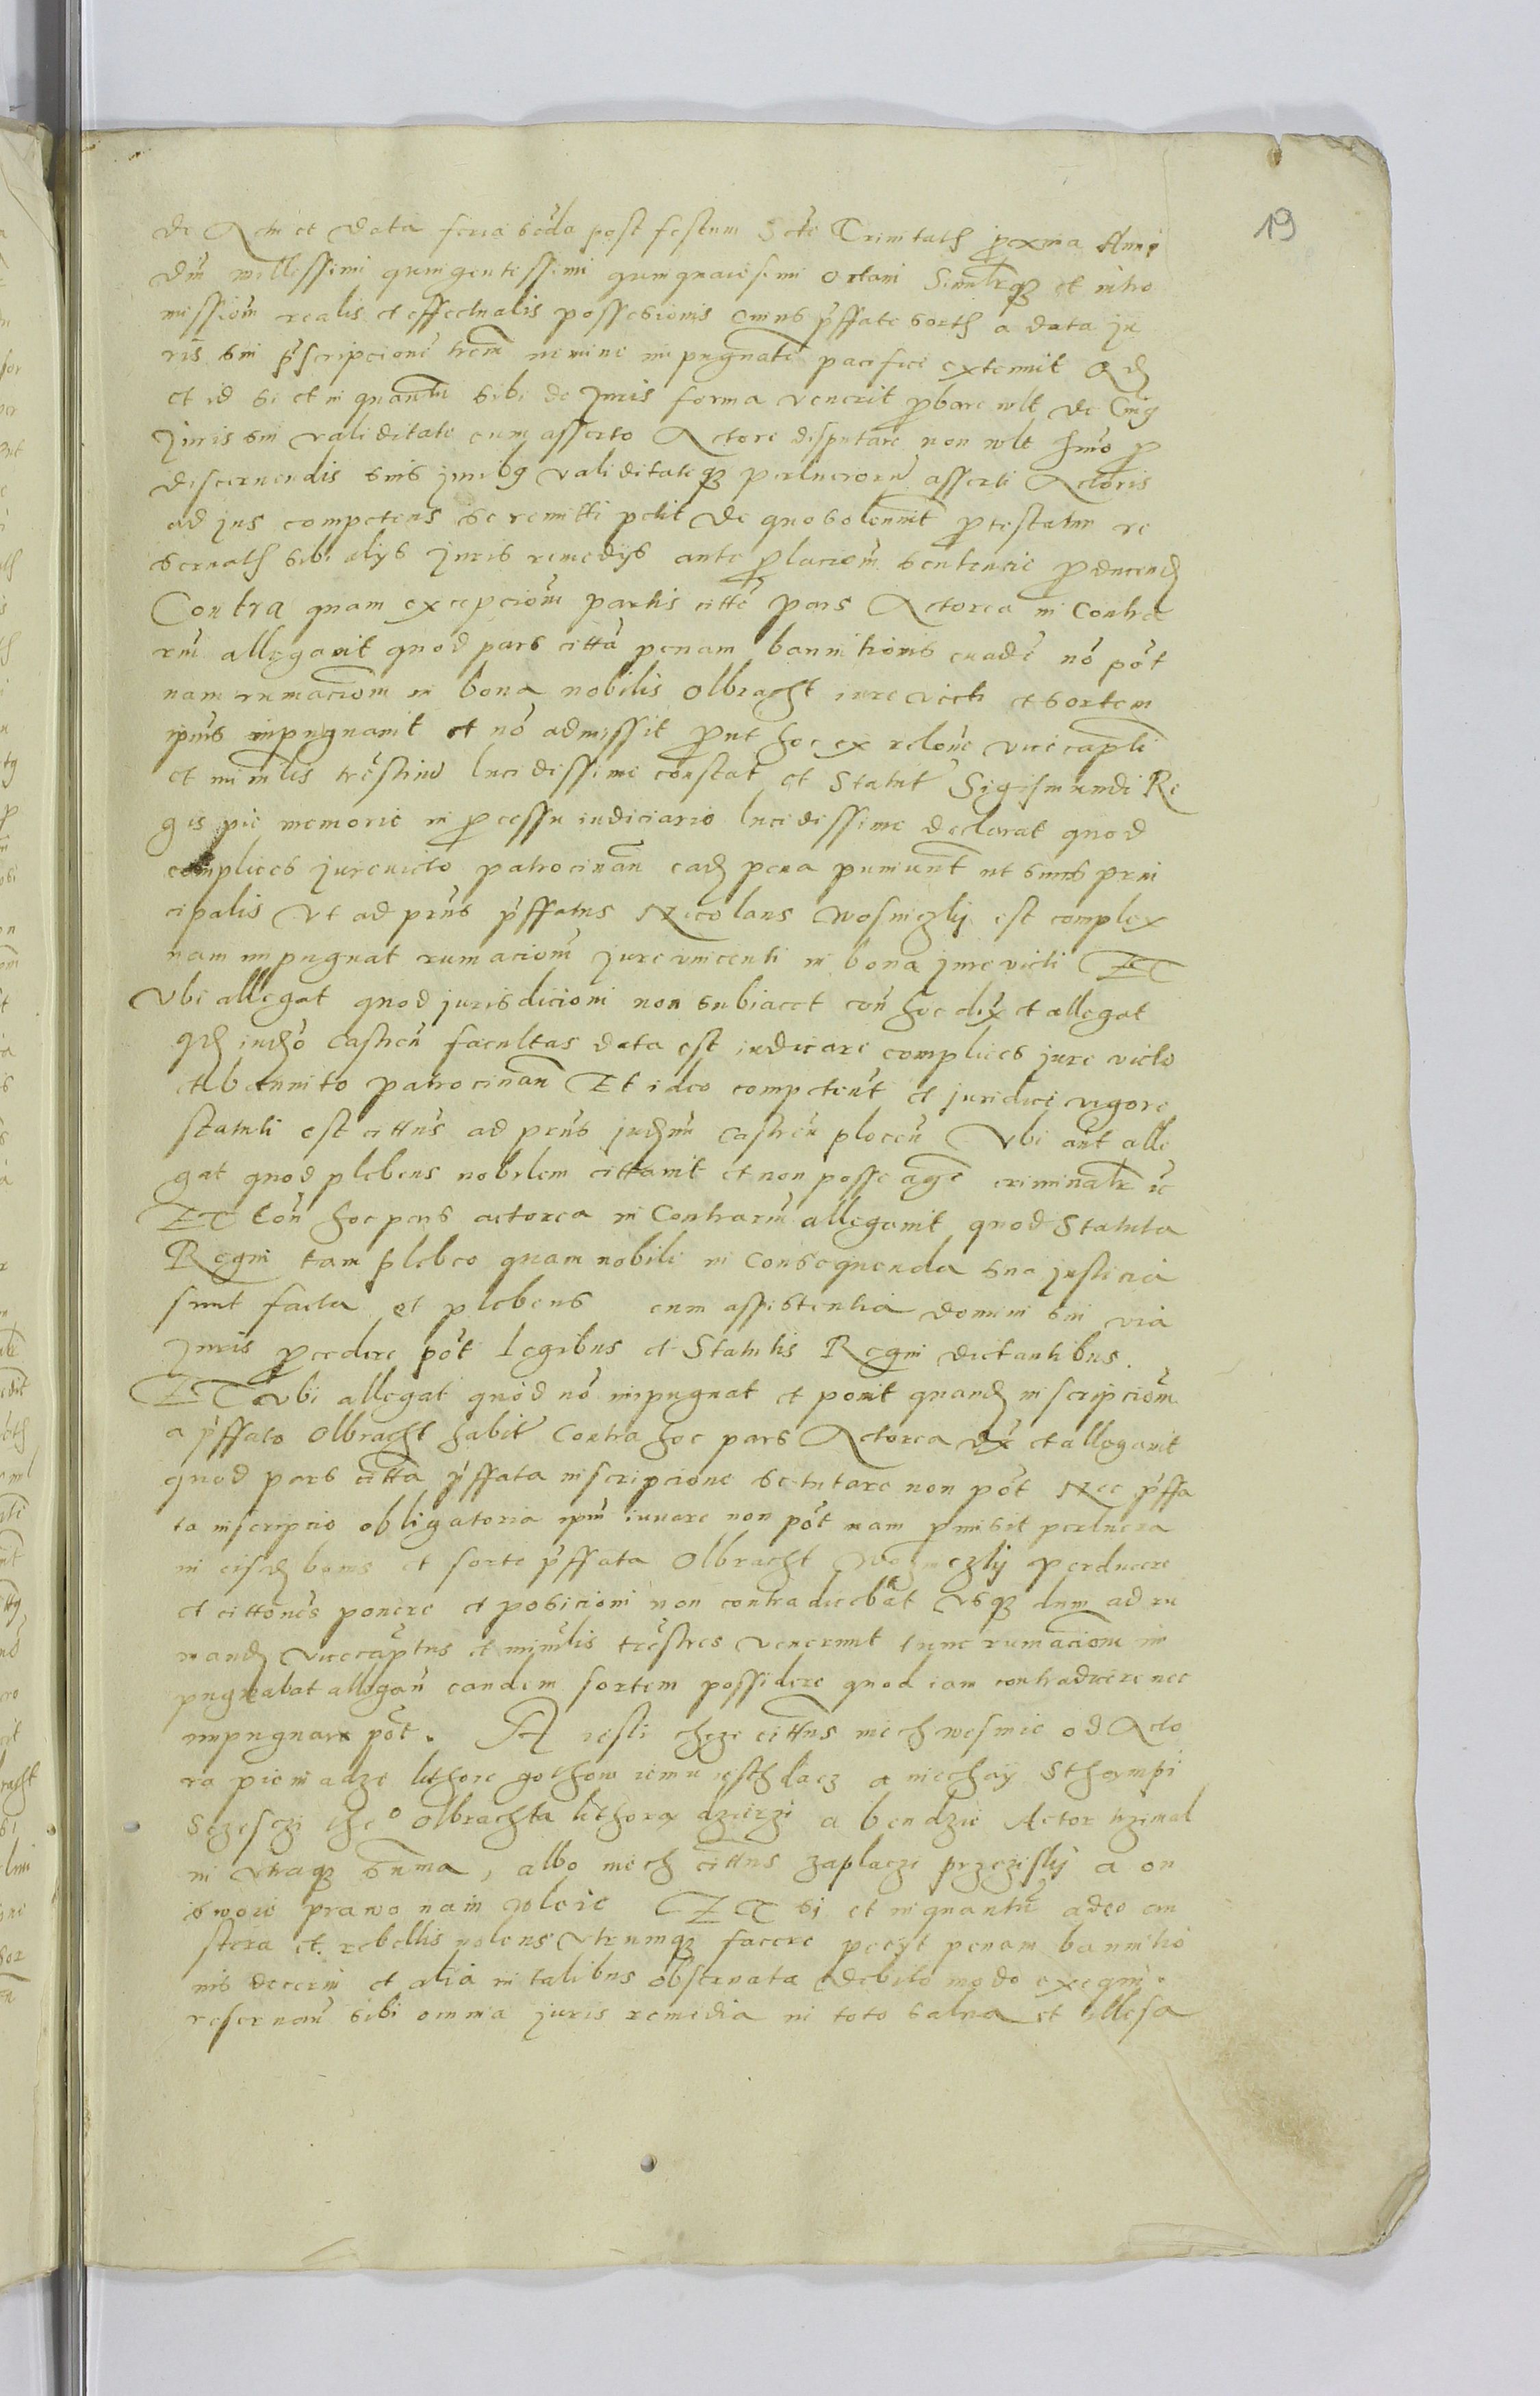 19
de Actu et Data feria sc̄da post festum Sctē Trinitatis proxima Anni
Dni millessimi quingentessimi quinquaiesimi octaui Simulrqȝ et intro
missiom̄ realis et effectualis possesionis omīs p̄ffate sortis a data ju
ris sui p̄scripcionē trem̄ nemine impugnātē pacifice extenuit
et id si et in quantū sibi de Juris forma venerit probare wlt de
Juris sui validitate cum asserto Actore disputare non wlt Imō pro
discernendis suis juribq validitatiqȝ perlucrorū asserti Actoris
ad jus competens se remitti petit De quo solennit̄ protestatur re
seruatis sibi alys Juris remedÿs ante prolaciom̄ sentencie producend
Contra quam excepciom̄ partis cittē pars Actorea in Contra
riū allegauit quod pars cittā penam bannitionis euadē nō pōt
nam rumaciom̄ in bona nobilis Olbracht iurevicti et sortem
ipius impugnauit et nō admissit prout hoc ex relōne vicecaptī
et ministris trēstriū lucidessime constat et Statut̄ Sigismundi Re
gis pie memorie in processu iudiciario lucidessime declarat quod
complices jurevicto patrocinan̄ ead pena puniunt̄ ut suus prin
cipalis Vt ad prn̄s p̄ffatus Nicolaus Wosniczky est complex
nam impugnat rumaciom̄ jurevincenti in bona jurevicti ET
Vbi allegat quod jurisdicioni non subiacet con̄ hoc dix̄ et allegat
qd iudō Castren̄ facultas data est iudicare complices jure victo
et bannito patrocinan̄ Et ideo competent̄ et juridice vigore
statuti est cittūs ad prn̄s judm̄ castren̄ plocen̄ Vbi aūt alle
gat quod plebeus nobilem cittauit et non posse agē criminalr ic
ET con̄ hoc pars actorea in Contrariū allegauit quod Statuta
Regni tam plebeo quam nobili in Consequenda sua justicia
sunt facta et plebeus cum assistentia domini sui via
Juris procedere pōt legibus et Statutis Regni dictantibus.
ET Vbi allegat quod nō impugnat et ponit quand inscripciom̄
a p̄ffato Olbracht habit̄ Contra hoc pars Actorea dix̄ et allegauit
quod pars cittā p̄ffata inscripcione se tutare non pōt Nec p̄ffa
ta inscripcio obligatoria ipm̄ iuuare non pōt nam prmisit perlucra
in eisd bonis et sorte p̄ffata Olbracht Wosniczky perducere
et cittonēs ponere et posicioni non contradicebat Vsqȝ dum ad ru
mand vicecaptus et minislis trēstres venerunt tunc rumaciom̄ im
pugnabat allegan̄ eandem sortem possidere quod iam contradicere nec
impugnare pōt. A iesli chcze cittūs niech wesmie od Acto
ra pieniadze kthore gothow iemu iesth dacz a niechay Sthampi
Sczesczi theo Olbrachta kthora dzierzi a bendzie Actor trzimal
in vtraqȝ suma, albo niech cittūs zaplaczi przeziski a on
swoie prawo nain wleie ET si et in quantū adeo au
stera et rebellis nolens Vtrumqȝ facere petÿt penam bannitio
nis decerni et alia in talibus obseruata debito modo exequi
reseruan̄ sibi omnia juris remedia in toto salua et illesa